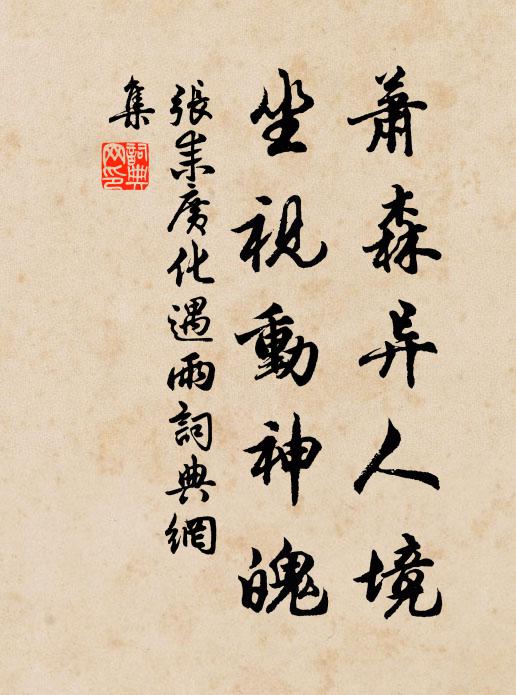 萧森异人境
坐視動神魄
張耒廣化遇雨詞典網
集
詞典網印